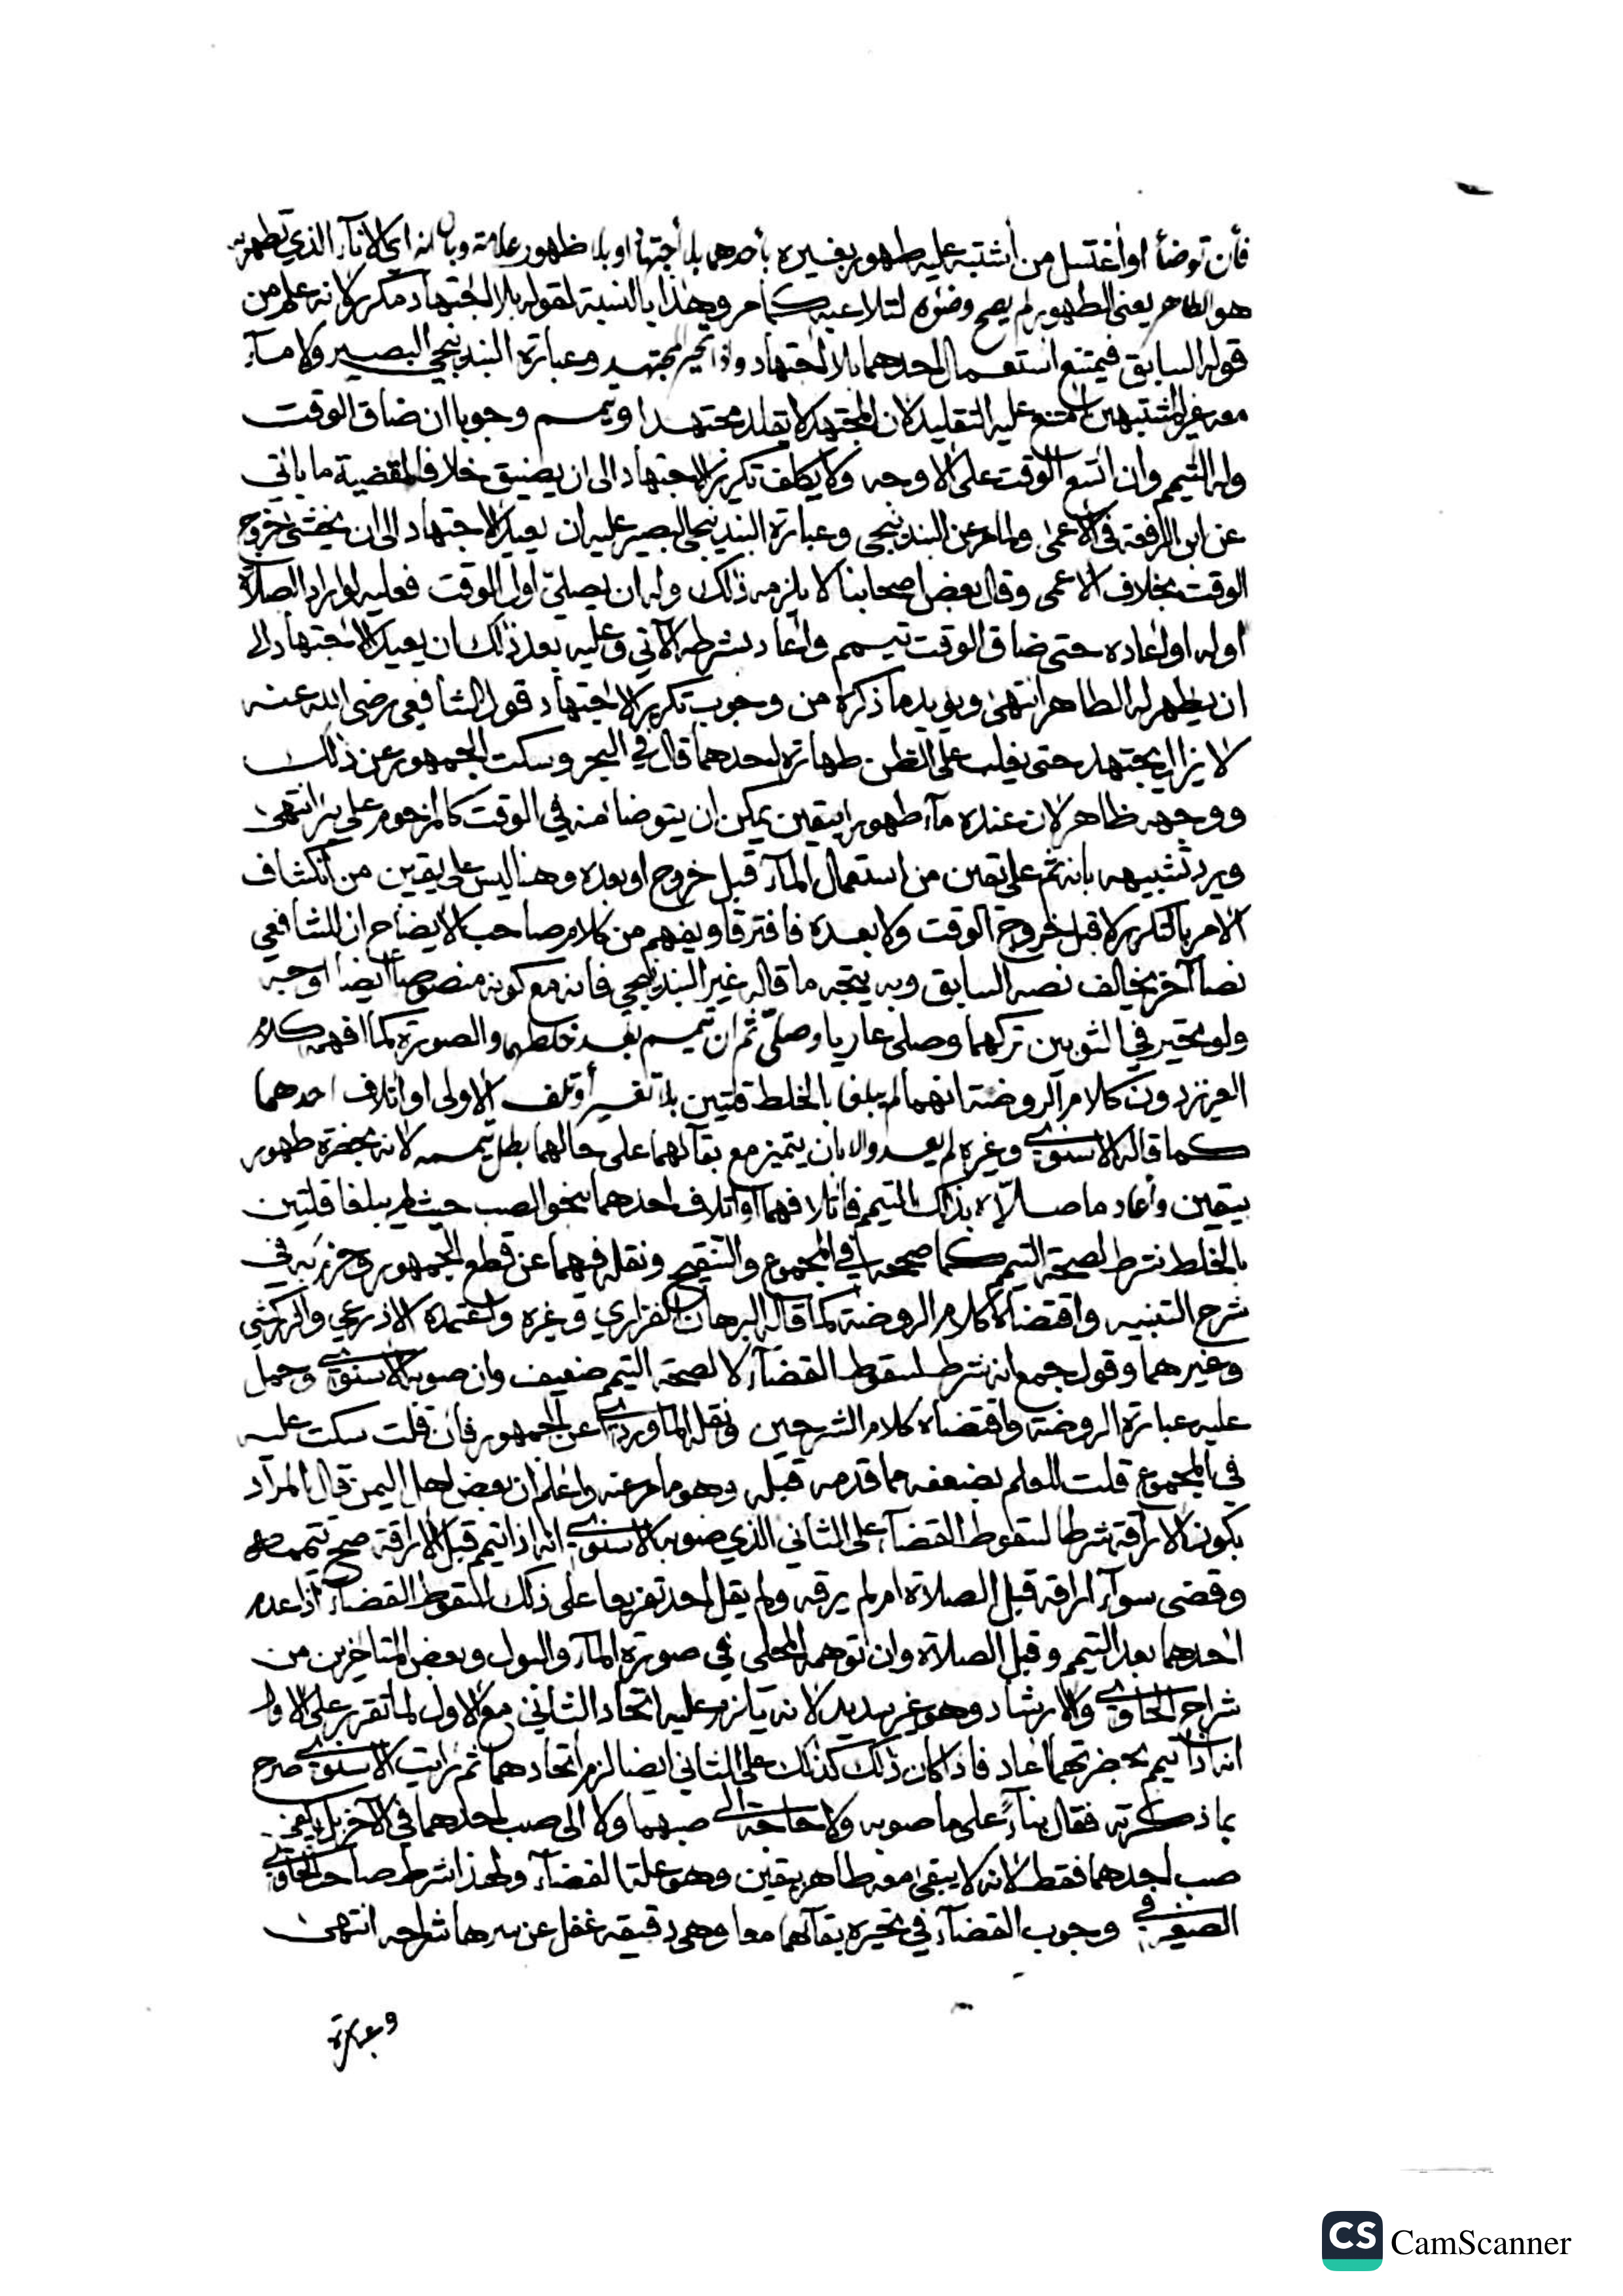 فأن توضأ او أغتسل من أشتبه عليه طهور بغيره بأحدهما بلا أجتهاد او بلا ظهور علامة وبان انه اي الاناء الذي تطهر به
هو الطاهر يعنى الطهور لم يصح وضؤه لتلاعبه كما مر وهذا بالنسبة لقوله بلا اجتهاد مكرر لانه علم من
قوله السابق فيمتنع استعمال احدهما بلا اجتهاد واذا تحير مجتهد وعبارة البندنيجي البصير ولا مآء
معه غير المشتبهين امتنع عليه التقليد لان المجتهد لا يقلد مجتهدا وتيمم وجوبا ان ضاق الوقت
وله التيمم وان اتسع الوقت على الاوجه ولا يكلف تكرير الاجتهاد الى ان يضيق خلافا لقضية ما ياتي
عن ابن الرفعة في الاعمى ولما مر عن البندنيجي وعبارة البندنيجي البصير عليه ان يعيد الاجتهاد الى ان يخشى خروج
الوقت بخلاف الاعمى وقال بعض اصحابنا لا يلزمه ذلك وله ان يصلي اول الوقت فعليه لو اراد الصلاة
اوله او اعاده حتى ضاق الوقت تيمم واعاد بشرطه الآتي وعليه بعد ذلك ان يعيد الاجتهاد الى
ان يظهر له الطاهر انتهى ويؤيد ما ذكره من وجوب تكرير الاجتهاد قول الشافعي رضى الله عنه
لا يزال يجتهد حتى يغلب على الظن طهارة احدهما قال في البحر وسكت الجمهور عن ذلك
ووجهه ظاهر لان عنده مآء طهورا بيقين يمكن ان يتوضا منه في الوقت كالمزحوم على بئر انتهى
ويرد تشبيهه بانه ثم على يقين من استعمال المآء قبل خروج او بعده وهنا ليس على يقين من انكشاف
الامر بالتكرير لا قبل خروج الوقت ولا بعده فافترقا ويفهم من كلام صاحب الايضاح ان للشافعي
نصا آخر يخالف نصه السابق وبه يتجه ما قاله غير البندنيجي فانه مع كونه منصوصا ايضا اوجه
ولو تحير في الثوبين تركهما وصلى عاريا وصلى ثم ان تيمم بعد خلطهما والصورة كما افهمه كلام
العزيز دون كلام الروضة انهما لم يبلغا بالخلط قلتين بلا تغير او تلف الاولى او اتلاف احدهما
كما قاله الاسنوي وغيره لم يعد والا بان يتيمم مع بقآئهما على حالهما بطل تيممه لانه بحضرة طهور
بيقين واعاد ما صلاه بذلك التيمم فاتلافهما او اتلاف احدهما بنحو الصب حيث لم يبلغا قلتين
بالخلط شرط لصحة التيمم كما صححه في المجموع والتنقيح ونقله فيهما عن قطع الجمهور وجزم به في
شرح التنبيه واقتضاه كلام الروضة كما قاله البرهان الفزاري وغيره واعتمده الاذرعي والزركشي
وغيرهما وقول جمع انه شرط لسقوط القضآء لا لصحة التيمم ضعيف وان صوبه الاسنوي وحمل
عليه عبارة الروضة واقتضاه كلام الشرحين ونقله الماوردي عن الجمهور فان قلت سكت عليه
في المجموع قلت للعلم بضعفه مما قدمه قبله وهو ما مر عنه واعلم ان بعض اهل اليمن قال المراد
بكون الاراقة شرطا لسقوط القضآء على الثاني الذي صوبه الاسنوي انه اذا تيمم قبل الاراقة صح تيممه
وقضى سوآء اراقه قبل الصلاة ام لم يرقه ولم يقل احد تفريعا على ذلك بسقوط القضآء اذا عدم
احدهما بعد التيمم وقبل الصلاة وان توهمه المحلي في صورة المآء والبول وبعض المتاخرين من
شراح الحاوي والارشاد وهو غير سديد لانه يلزم عليه اتحاد الثاني مع الاول لما تقرر على الاول
انه اذا تيمم بحضرتهما اعاد فاذا كان ذلك كذلك على الثاني ايضا لزم اتحادهما ثم رايت الاسنوي صرح
بما ذكرته فقال بنآءً على ما صوبه ولا حاجة الى صبهما ولا الى صب احدهما في الآخر بل يكفي
صب احدهما فقط لانه لا يبقى معه طاهر بيقين وهو علة القضآء ولهذا شرط صاحب الحاوي
الصغير في وجوب القضآء في تحيره بقآئهما معا وهي دقيقة غفل عن سرها شراحه انتهى
وعبارة
CS CamScanner